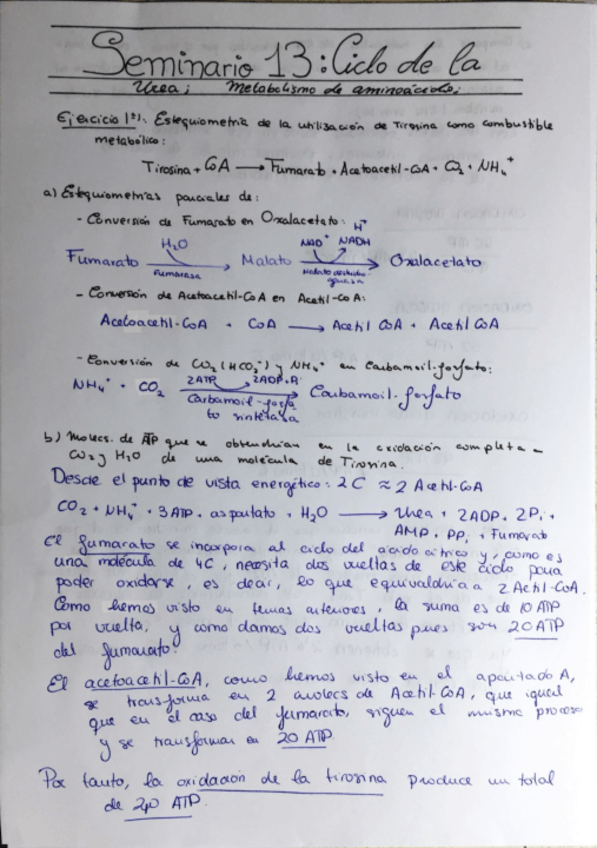 Seminario 13: Ciclo de la
Urea; Metabolismo de aminoácidos;
Ejercicio 1º): Estequiometría de la utilización de Tirosina como combustible
metabólico:
Tirosina + CoA → Fumarato + Acetoacetil-CoA + CO2 + NH4+
a) Estequiometrías parciales de:
- Conversión de Fumarato en Oxalacetato: H+
H2O NAD+ NADH
Fumarato → Malato → Oxalacetato
fumarasa Malato deshidro-
genasa
- Conversión de Acetoacetil-CoA en Acetil-CoA:
Acetoacetil-CoA + CoA → Acetil CoA + Acetil CoA
- Conversión de CO2 (HCO3-) y NH4+ en Carbamoil-fosfato:
NH4+ + CO2 2ATP 2ADP+Pi → Carbamoil-fosfato
Carbamoil-fosfa
to sintetasa
b) Molecs. de ATP que se obtendrían en la oxidación completa a
CO2 y H2O de una molécula de Tirosina.
Desde el punto de vista energético: 2C ≈ 2 Acetil-CoA
CO2 + NH4+ + 3ATP + aspartato + H2O → Urea + 2ADP + 2Pi +
AMP + PPi + Fumarato
El fumarato se incorpora al ciclo del ácido cítrico y, como es
una molécula de 4C, necesita dos vueltas de este ciclo para
poder oxidarse, es decir, lo que equivaldría a 2 Acetil-CoA.
Como hemos visto en temas anteriores, la suma es de 10 ATP
por vuelta, y como damos dos vueltas pues son 20 ATP
del fumarato.
El acetoacetil-CoA, como hemos visto en el apartado A,
se transforma en 2 molecs de Acetil-CoA, que igual
que en el caso del fumarato, siguen el mismo proceso
y se transforman en 20 ATP.
Por tanto, la oxidación de la tirosina produce un total
de 40 ATP.